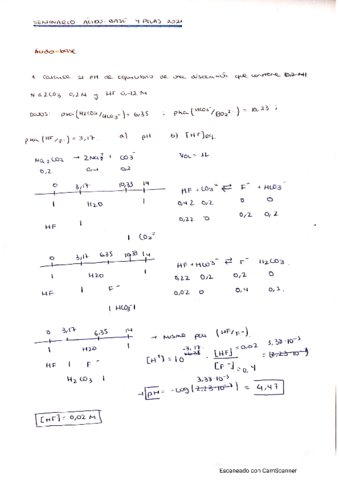 SEMINARIO ÁCIDO-BASE Y PILAS 2021
Ácido-base
1. Calcule el pH de equilibrio de una disolución que contiene
Na2CO3 0,2 M y HF 0,42 M
DATOS: pKa (H2CO3/HCO3-) = 6,35 ; pKa (HCO3-/CO3=) = 10,33 ;
pKa (HF/F-) = 3,17 a) pH b) [HF]eq
Na2CO3 → 2Na+ + CO3= Vol = 1L
0,2 0,4 0,2
0 3,17 10,33 14
H2O
HF
CO3=
HF + CO3= ⇄ F- + HCO3-
0,42 0,2 0 0
0,22 0 0,2 0,2
0 3,17 6,35 10,33 14
H2O
HF F-
HCO3-
HF + HCO3- ⇄ F- H2CO3
0,22 0,2 0,2 0
0,02 0 0,4 0,2
0 3,17 6,35 14
H2O
HF F-
H2CO3
→ pKa (HF/F-)
[H+] = 10^-3,17 · [HF] = 0,02 / [F-] = 0,4 = 3,38·10^-5
→ pH = -log (3,38·10^-5) = 4,47
[HF] = 0,02 M
Escaneado con CamScanner